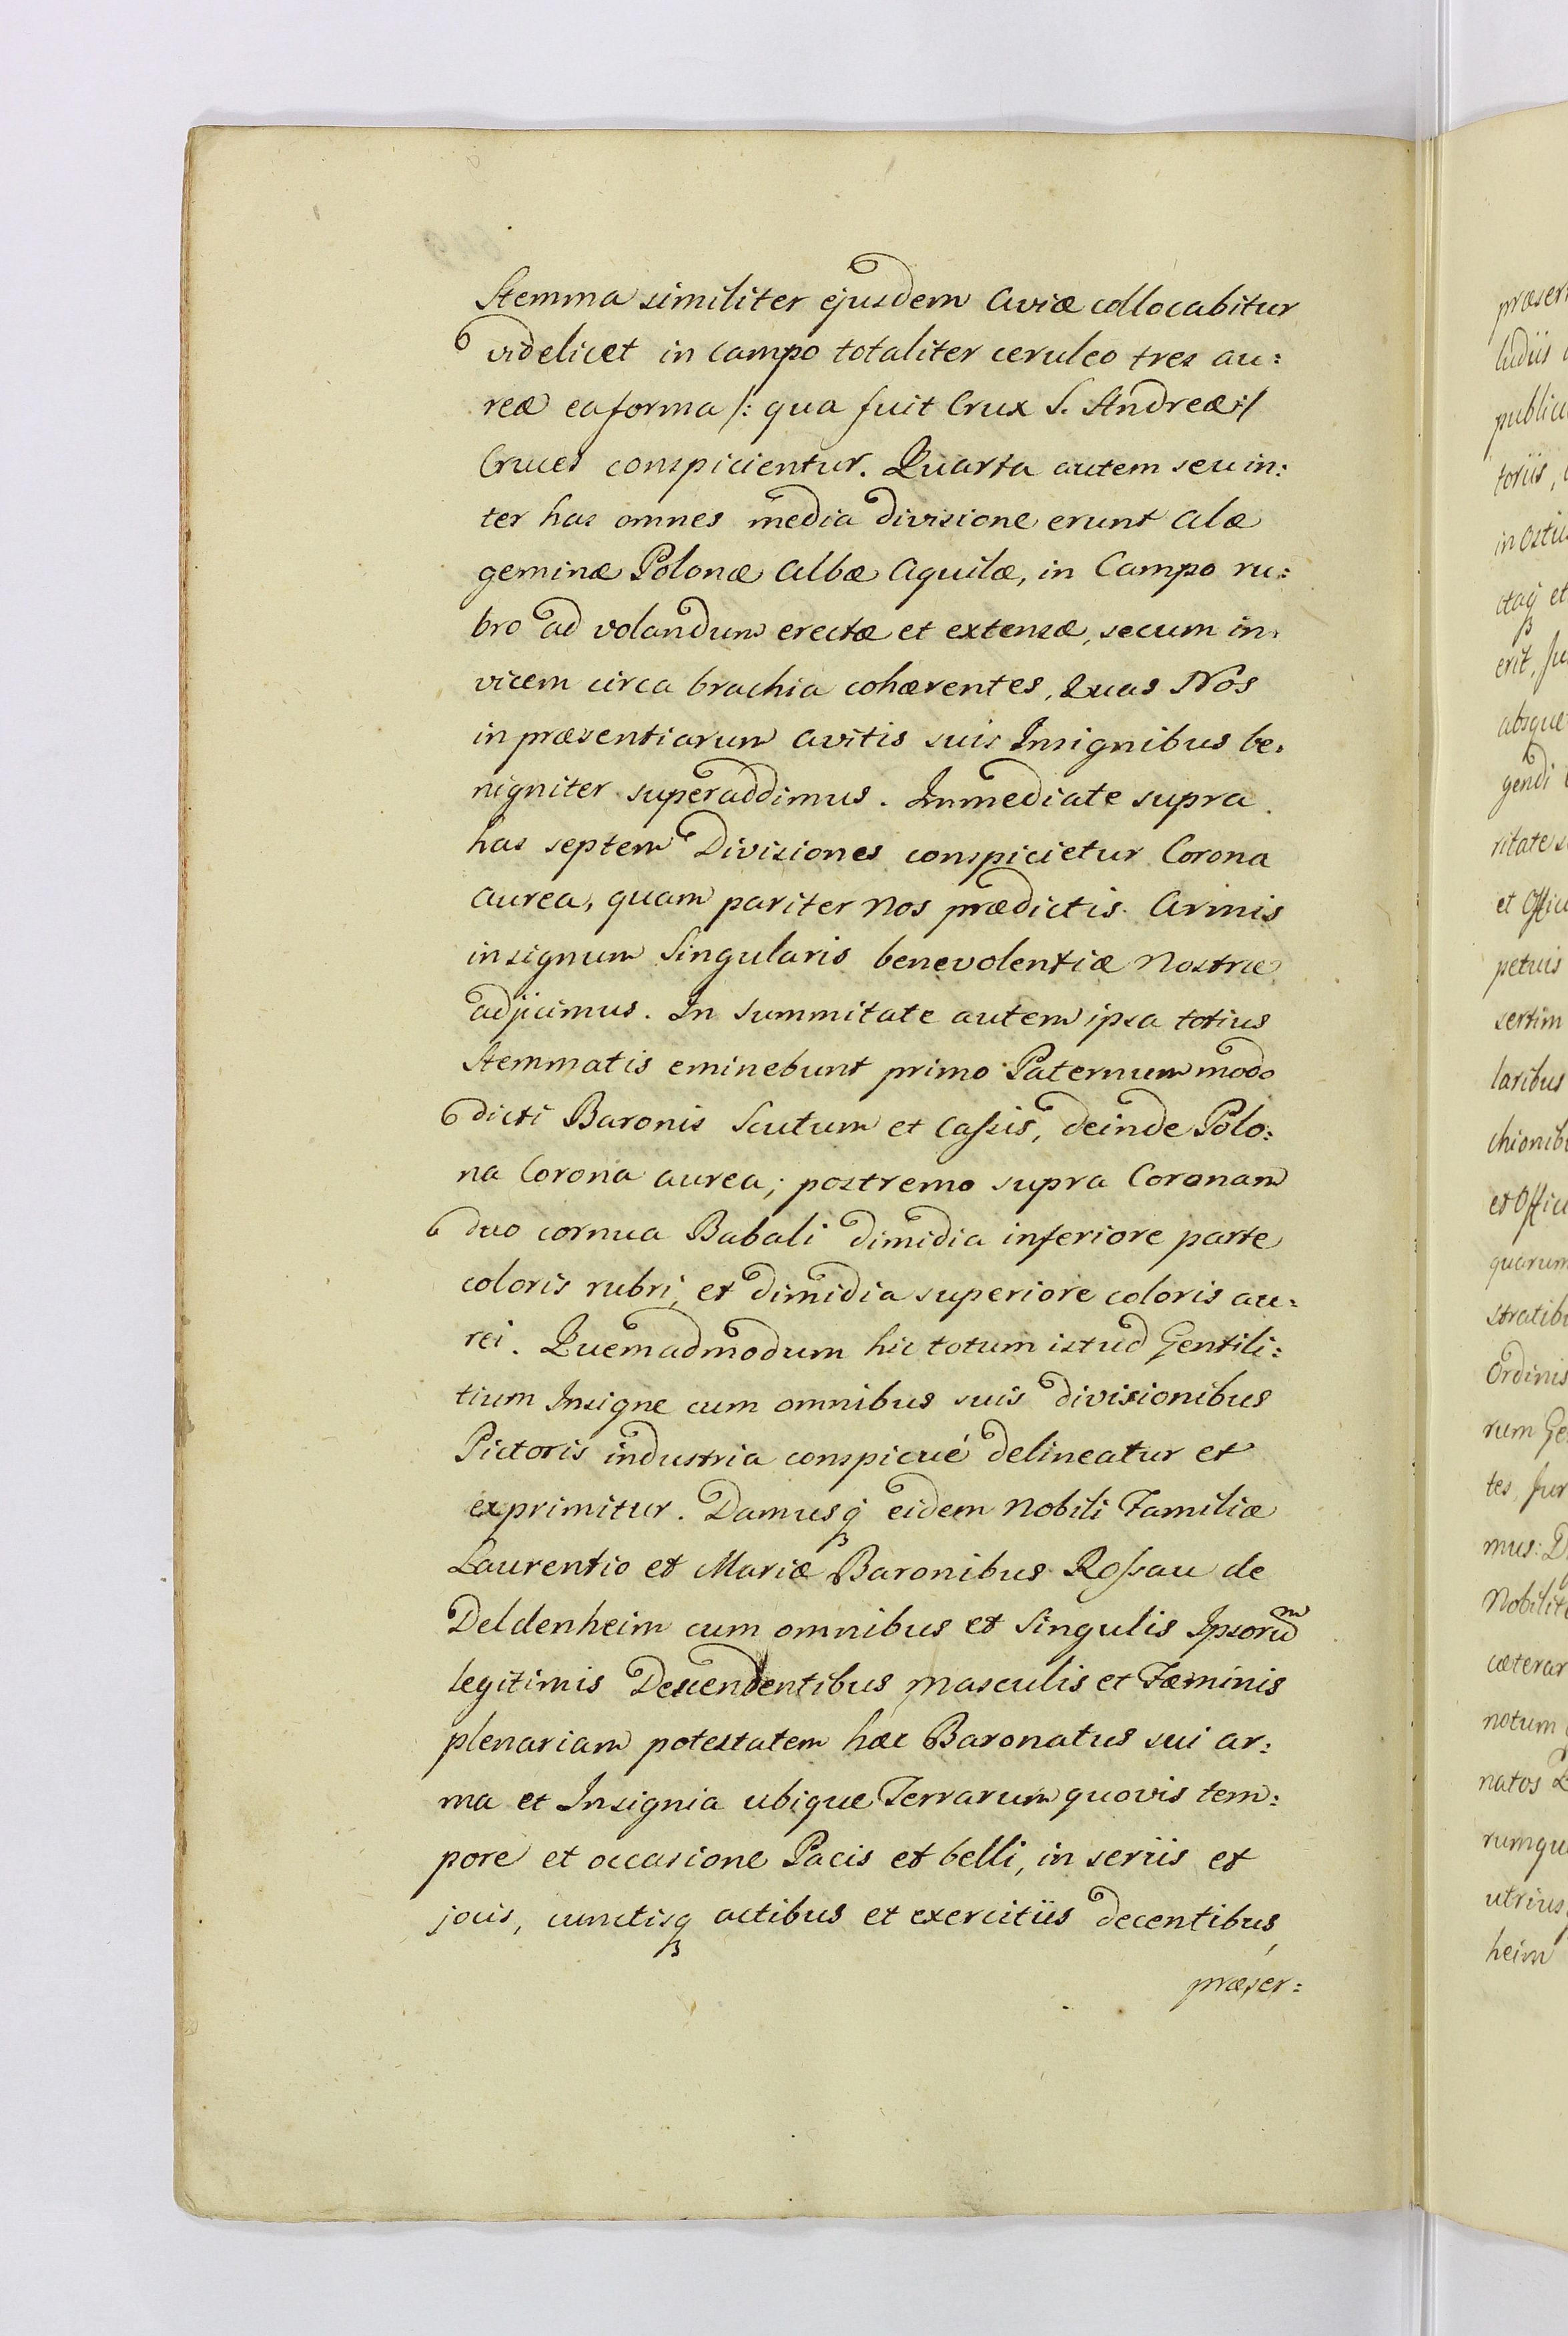 Stemma similiter ejusdem Aviæ collocabitur
videlicet in campo totaliter ceruleo tres au:
reæ ea forma /: qua fuit Crux S. Andreæ :/
Cruces conspicientur. Quarta autem seu in:
ter has omnes media divisione erunt Alæ
geminæ Polonæ Albæ Aquilæ, in Campo ru:
bro ad volandum erectæ et extensæ, secum in:
vicem circa brachia cohærentes, Quas Nos
in præsentiarum avitis suis Insignibus be:
nigniter superaddimus. Immediate supra
has septem Divisiones conspicietur Corona
aurea, quam pariter Nos prædictis Armis
in signum Singularis benevolentiæ Nostræ
adjicimus. In Summitate autem ipsa totius
Stemmatis eminebunt primo Paternum modo
dicti Baronis Scutum et Cassis, deinde Polo:
na Corona aurea; postremo supra Coronam
duo cornua Babali dimidia inferiore parte
coloris rubri, et dimidia superiore coloris au:
rei. Quemadmodum hic totum istud Gentili:
tium Insigne cum omnibus suis divisionibus
Pictoris industria conspicué delineatur et
exprimitur. Damusq eidem Nobili Familiæ
Laurentio et Mariæ Baronibus Rossau de
Deldenheim cum omnibus et Singulis Ipsorum
legitimis Descendentibus Masculis et Fæminis
plenariam potestatem hæc Baronatus sui ar:
ma et Insignia ubique Terrarum quovis tem:
pore et occasione Pacis et belli, in seriis et
jocis, cunctisq actibus et exercitiis decentibus,
præser:
præser
ludiis
publici
toriis,
in osti
ctaq et
erit, Ju
absque
gendi
ritate
et Offic
petuis
sertim
laribus
chionib
et Offic
quarum
stratib
Ordinis
rum Ge
tes, Jur
mus: D
Nobilit
cæterar
notum
natos
rumqu
utrius
heim